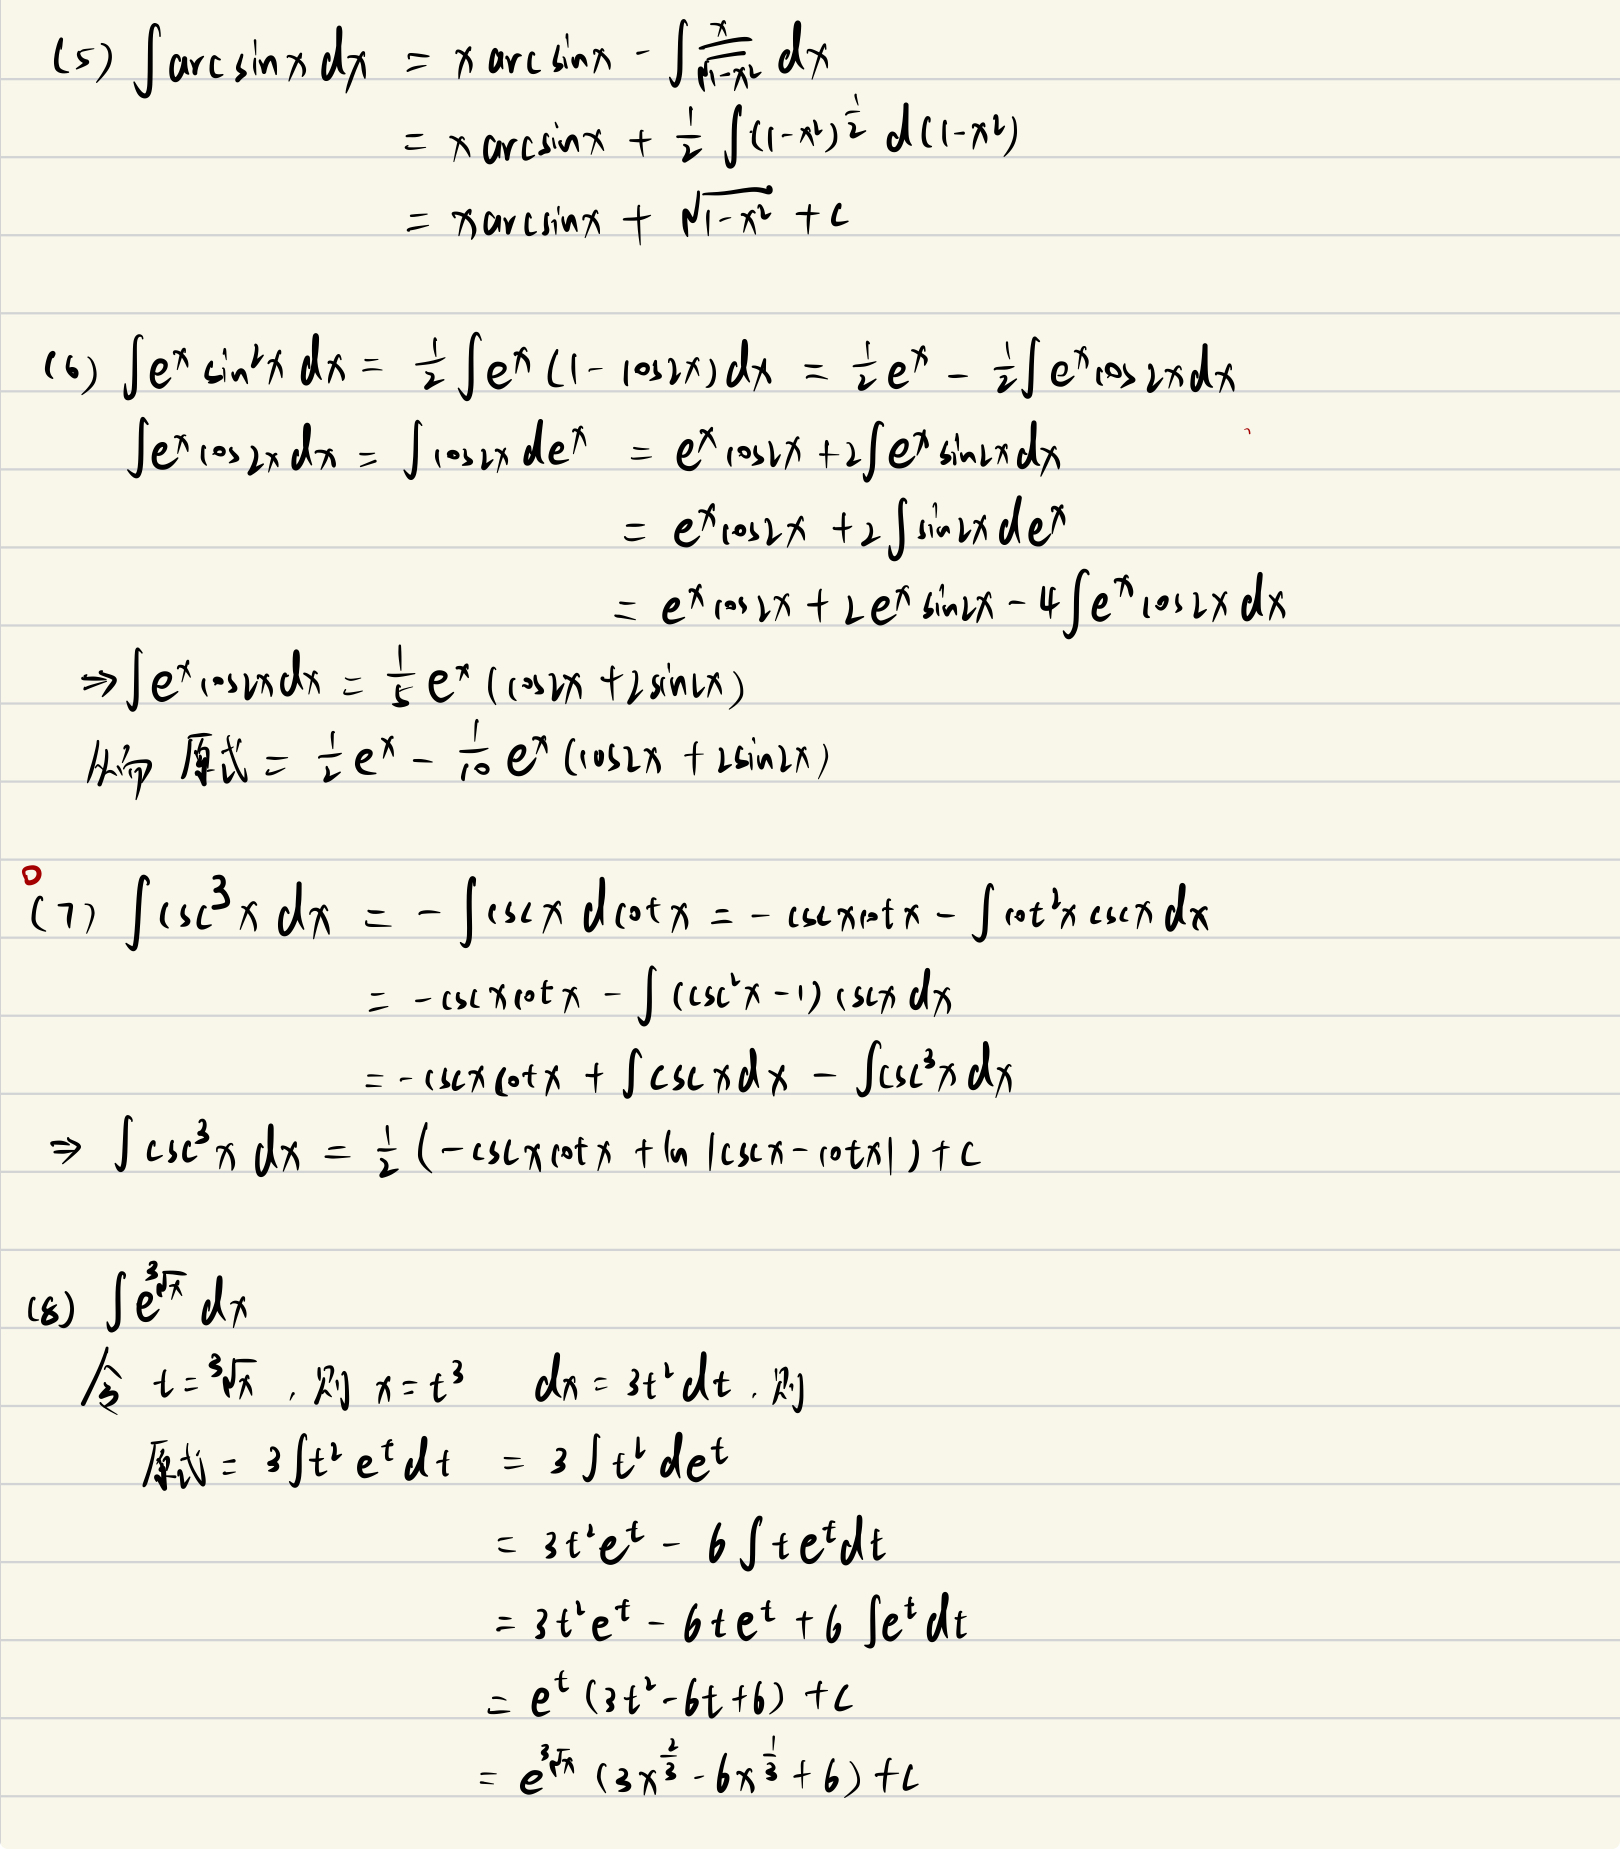 (5) ∫arcsinx dx = x arcsinx - ∫ x/√(1-x²) dx
= x arcsinx + 1/2 ∫(1-x²)^(1/2) d(1-x²)
= x arcsinx + √(1-x²) + C
(6) ∫e^x sin²x dx = 1/2 ∫e^x (1-cos2x)dx = 1/2 e^x - 1/2 ∫e^x cos2x dx
∫e^x cos2x dx = ∫cos2x de^x = e^x cos2x + 2∫e^x sin2x dx
= e^x cos2x + 2∫sin2x de^x
= e^x cos2x + 2e^x sin2x - 4∫e^x cos2x dx
⇒ ∫e^x cos2x dx = 1/5 e^x (cos2x + 2sin2x)
从而 原式 = 1/2 e^x - 1/10 e^x (cos2x + 2sin2x)
(7) ∫csc³x dx = -∫cscx dcotx = -cscxcotx - ∫cot²x cscx dx
= -cscxcotx - ∫(csc²x-1) cscx dx
= -cscxcotx + ∫cscx dx - ∫csc³x dx
⇒ ∫csc³x dx = 1/2 (-cscxcotx + ln|cscx-cotx|) + C
(8) ∫e^(³√x) dx
令 t=³√x, 则 x=t³ dx=3t²dt, 则
原式 = 3∫t² e^t dt = 3∫t² de^t
= 3t²e^t - 6∫te^t dt
= 3t²e^t - 6te^t + 6∫e^t dt
= e^t (3t²-6t+6) + C
= e^(³√x) (3x^(2/3) - 6x^(1/3) + 6) + C